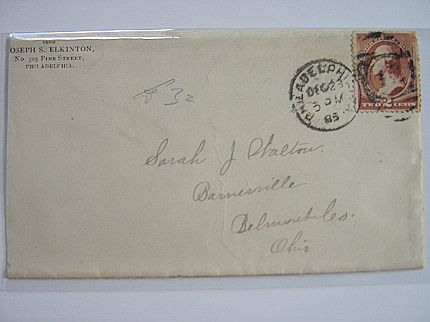 FROM
JOSEPH S. ELKINTON,
No. 325 PINE STREET,
PHILADELPHIA,
PHILADELPHIA
DEC 23
5 PM
85
TWO CENTS
Sarah J Walton
Barnesville
Belmont Co.
Ohio